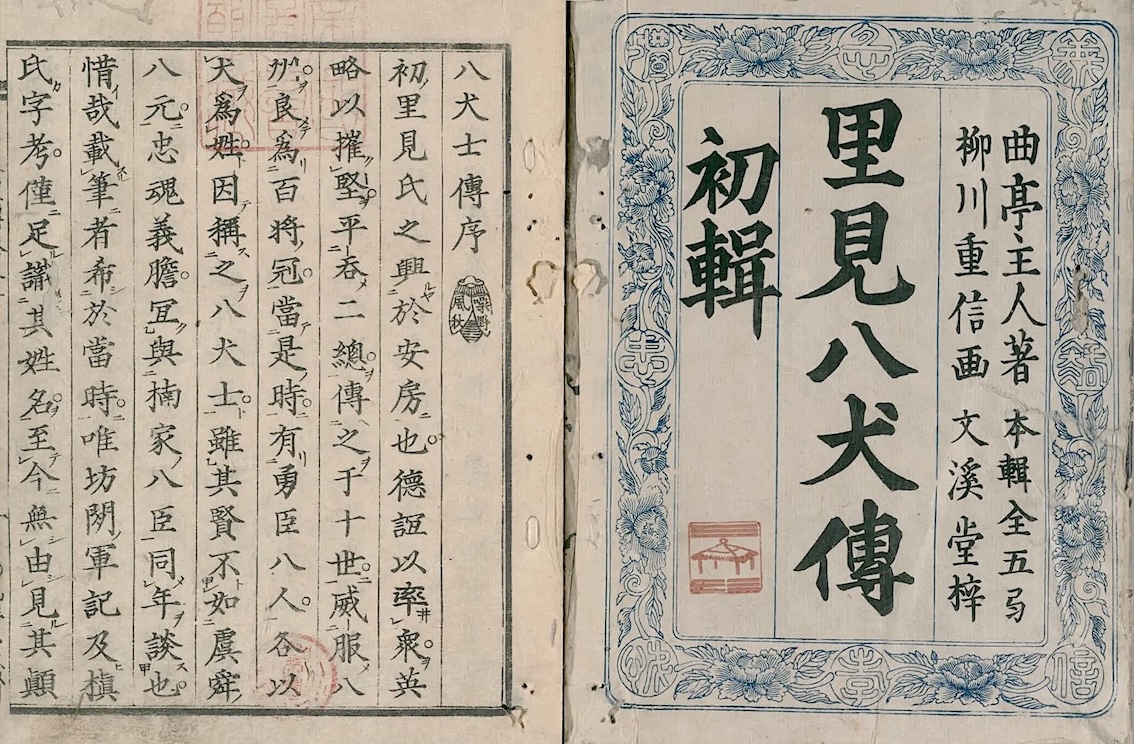 曲亭主人著 本輯全五弓
柳川重信画 文溪堂梓
里見八犬傳
初輯
八犬士傳序
初里見氏之興於安房也德誼以率衆英
略以摧堅平呑二總傳之于十世威服八
州良爲百將冠當是時有勇臣八人各以
犬爲姓因稱之八犬士雖其賢不如虞舜
八元忠魂義膽冝與楠家八臣同年談也
惜哉載筆者希於當時唯坊閒軍記及槙
氏字考僅足識其姓名至今無由見其顛